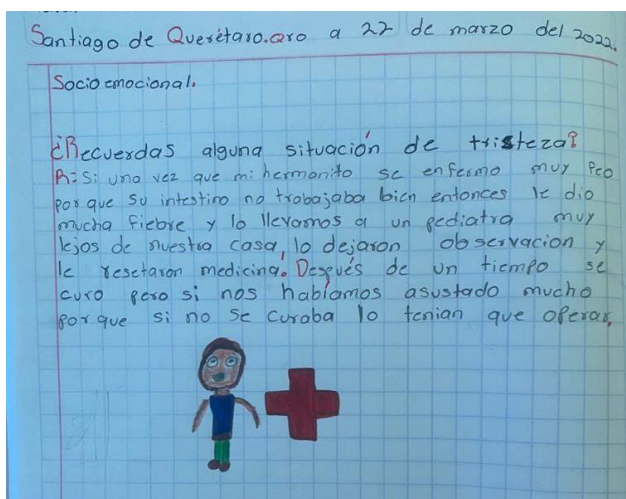 Santiago de Querétaro.Qro a 22 de marzo del 2022.
Socioemocional.
¿Recuerdas alguna situación de tristeza?
R= Si una vez que mi hermanito se enfermo muy feo
porque su intestino no trabajaba bien entonces le dio
mucha fiebre y lo llevamos a un pediatra muy
lejos de nuestra casa, lo dejaron observacion y
le resetaron medicina. Después de un tiempo se
curo pero si nos habíamos asustado mucho
porque si no se curaba lo tenian que operar.